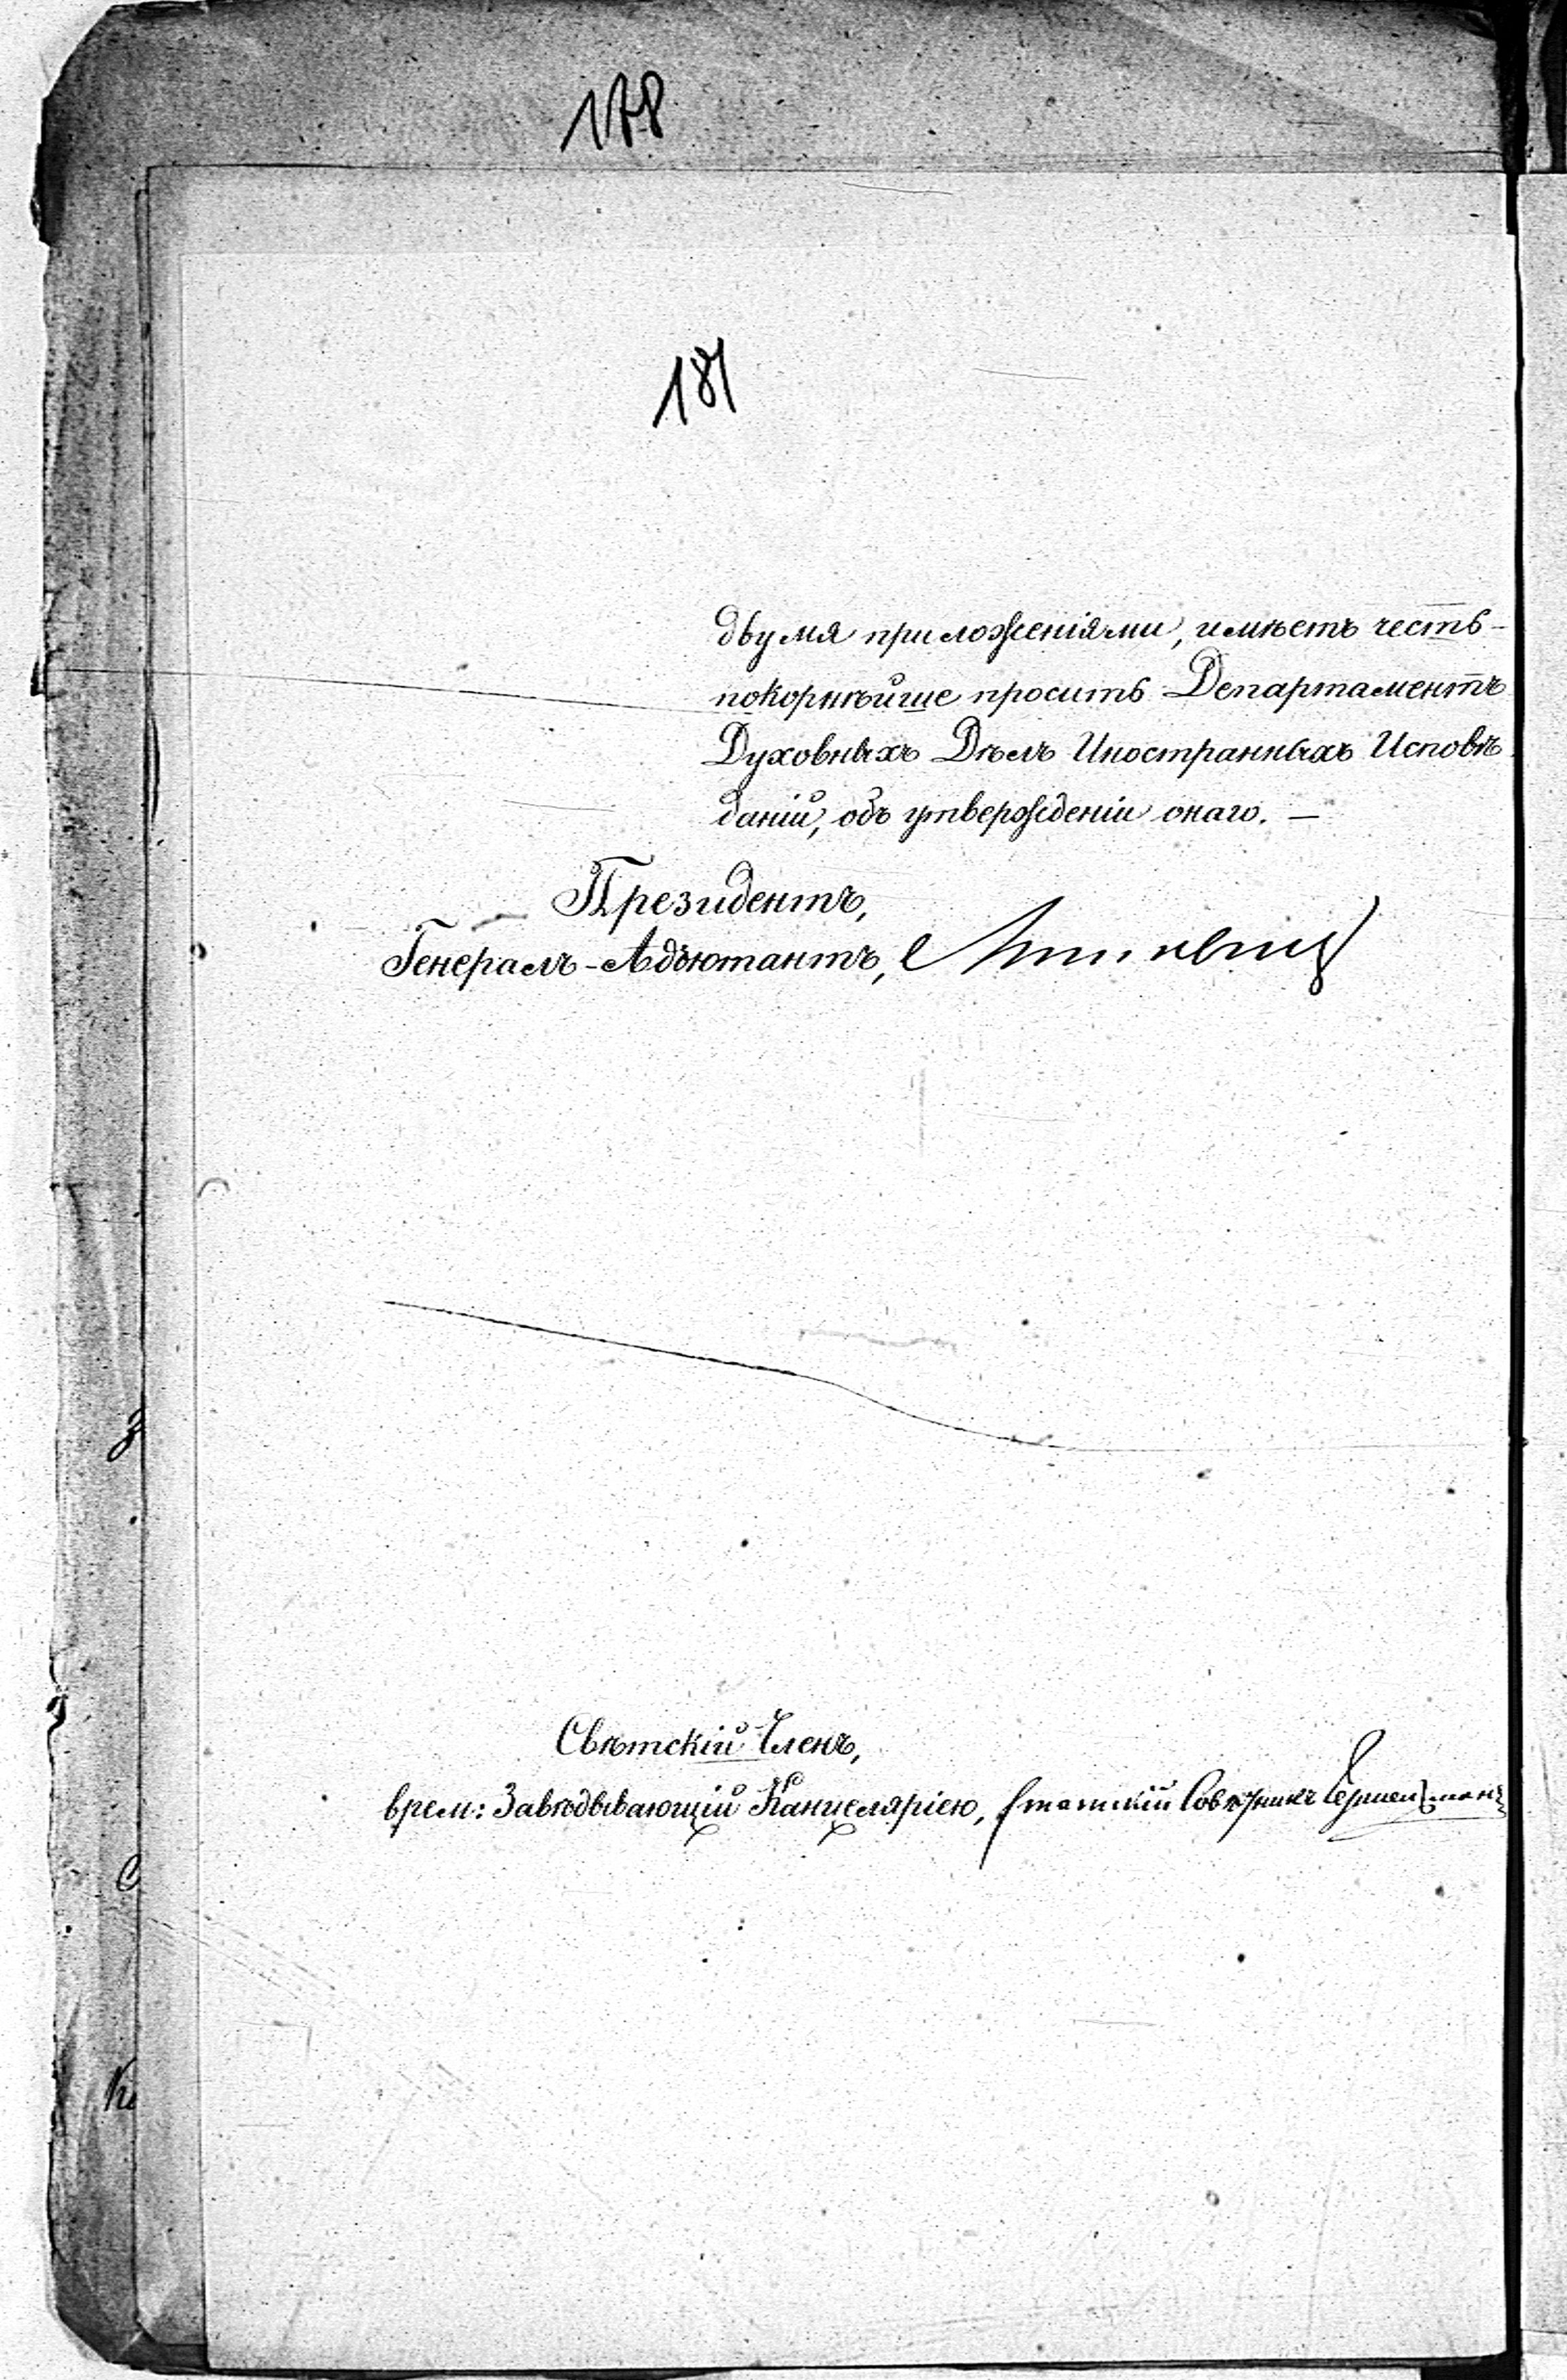 178
181
двумя приложеніями, имѣетъ честь-
покорнѣйше просить Департаментъ
Духовныхъ Дѣлъ Иностранныхъ Исповѣ-
даній, объ утвержденіи онаго. —
Президентъ,
Генералъ-Адъютантъ,
Свѣтскій Членъ,
врем: Завѣдывающій Канцеляріею, Статскій Совѣтникъ